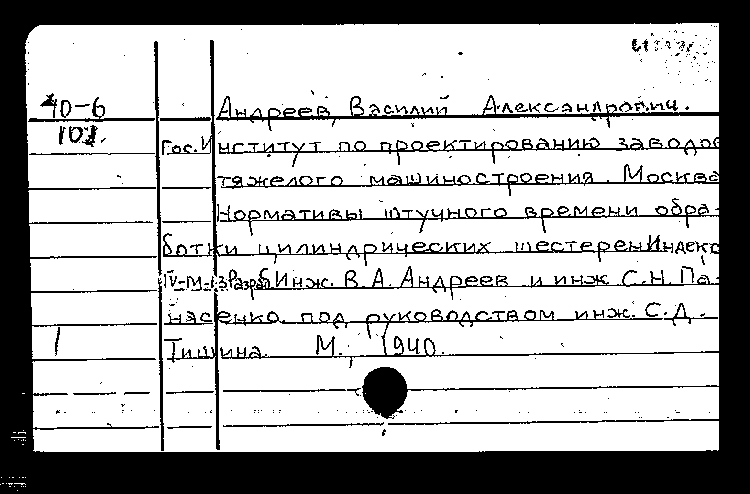 40-6
101.
Андреев, Василий Александрович.
Гос. Институт по проектированию заводов
тяжелого машиностроения. Москва
Нормативы штучного времени обра-
ботки цилиндрических шестерен Индекс
IV-М-13 Разраб. Инж. В.А. Андреев и инж. С.Н. Па-
насенко. под руководством инж. С.Д.
1 Тишина. М., 1940.